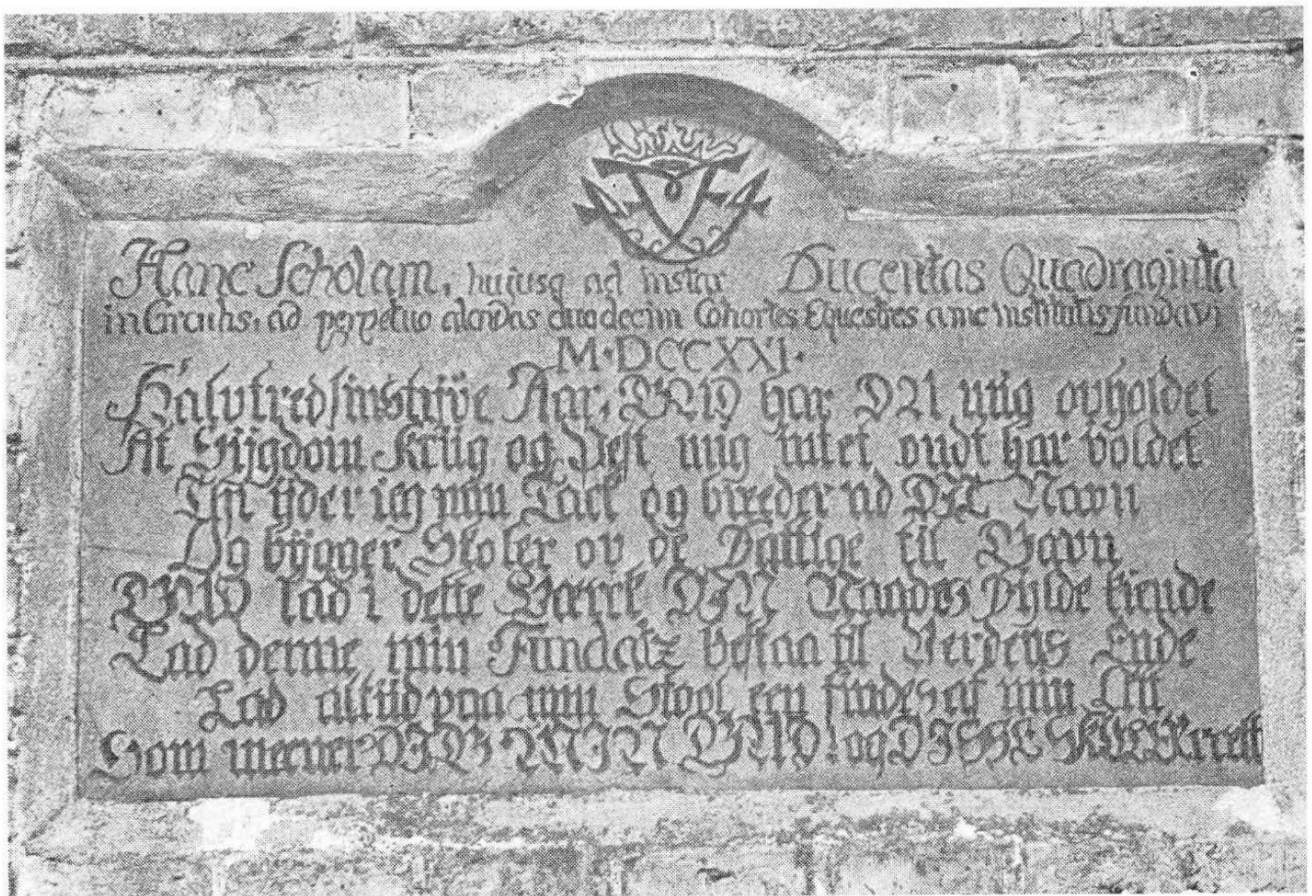 Hanc Scholam, hujusq ad instar Ducentas Quadraginta
in Gratiis, ad perpetuo alendas duodecim Cohortes Equestres a me institutis fundavi
M·DCCXXI·
Halvtredsinstijve Aar, GUD har DU mig opholdet
At Sijgdom Krüg og Pest mig intet ondt har voldet
Thi ÿder ieg min Tack og breeder ud DIT Navn
Og bÿgger Skoler op de Fattige til Gavn
GUD lad i dette Værck DIN Naades Fÿlde kiende
Lad denne min Fundatz bestaa til Verdens Ende
Lad altiid paa min Stool een findes af min Æt
Som meener DIG MIN GUD! og DISSE SKOLER rætt